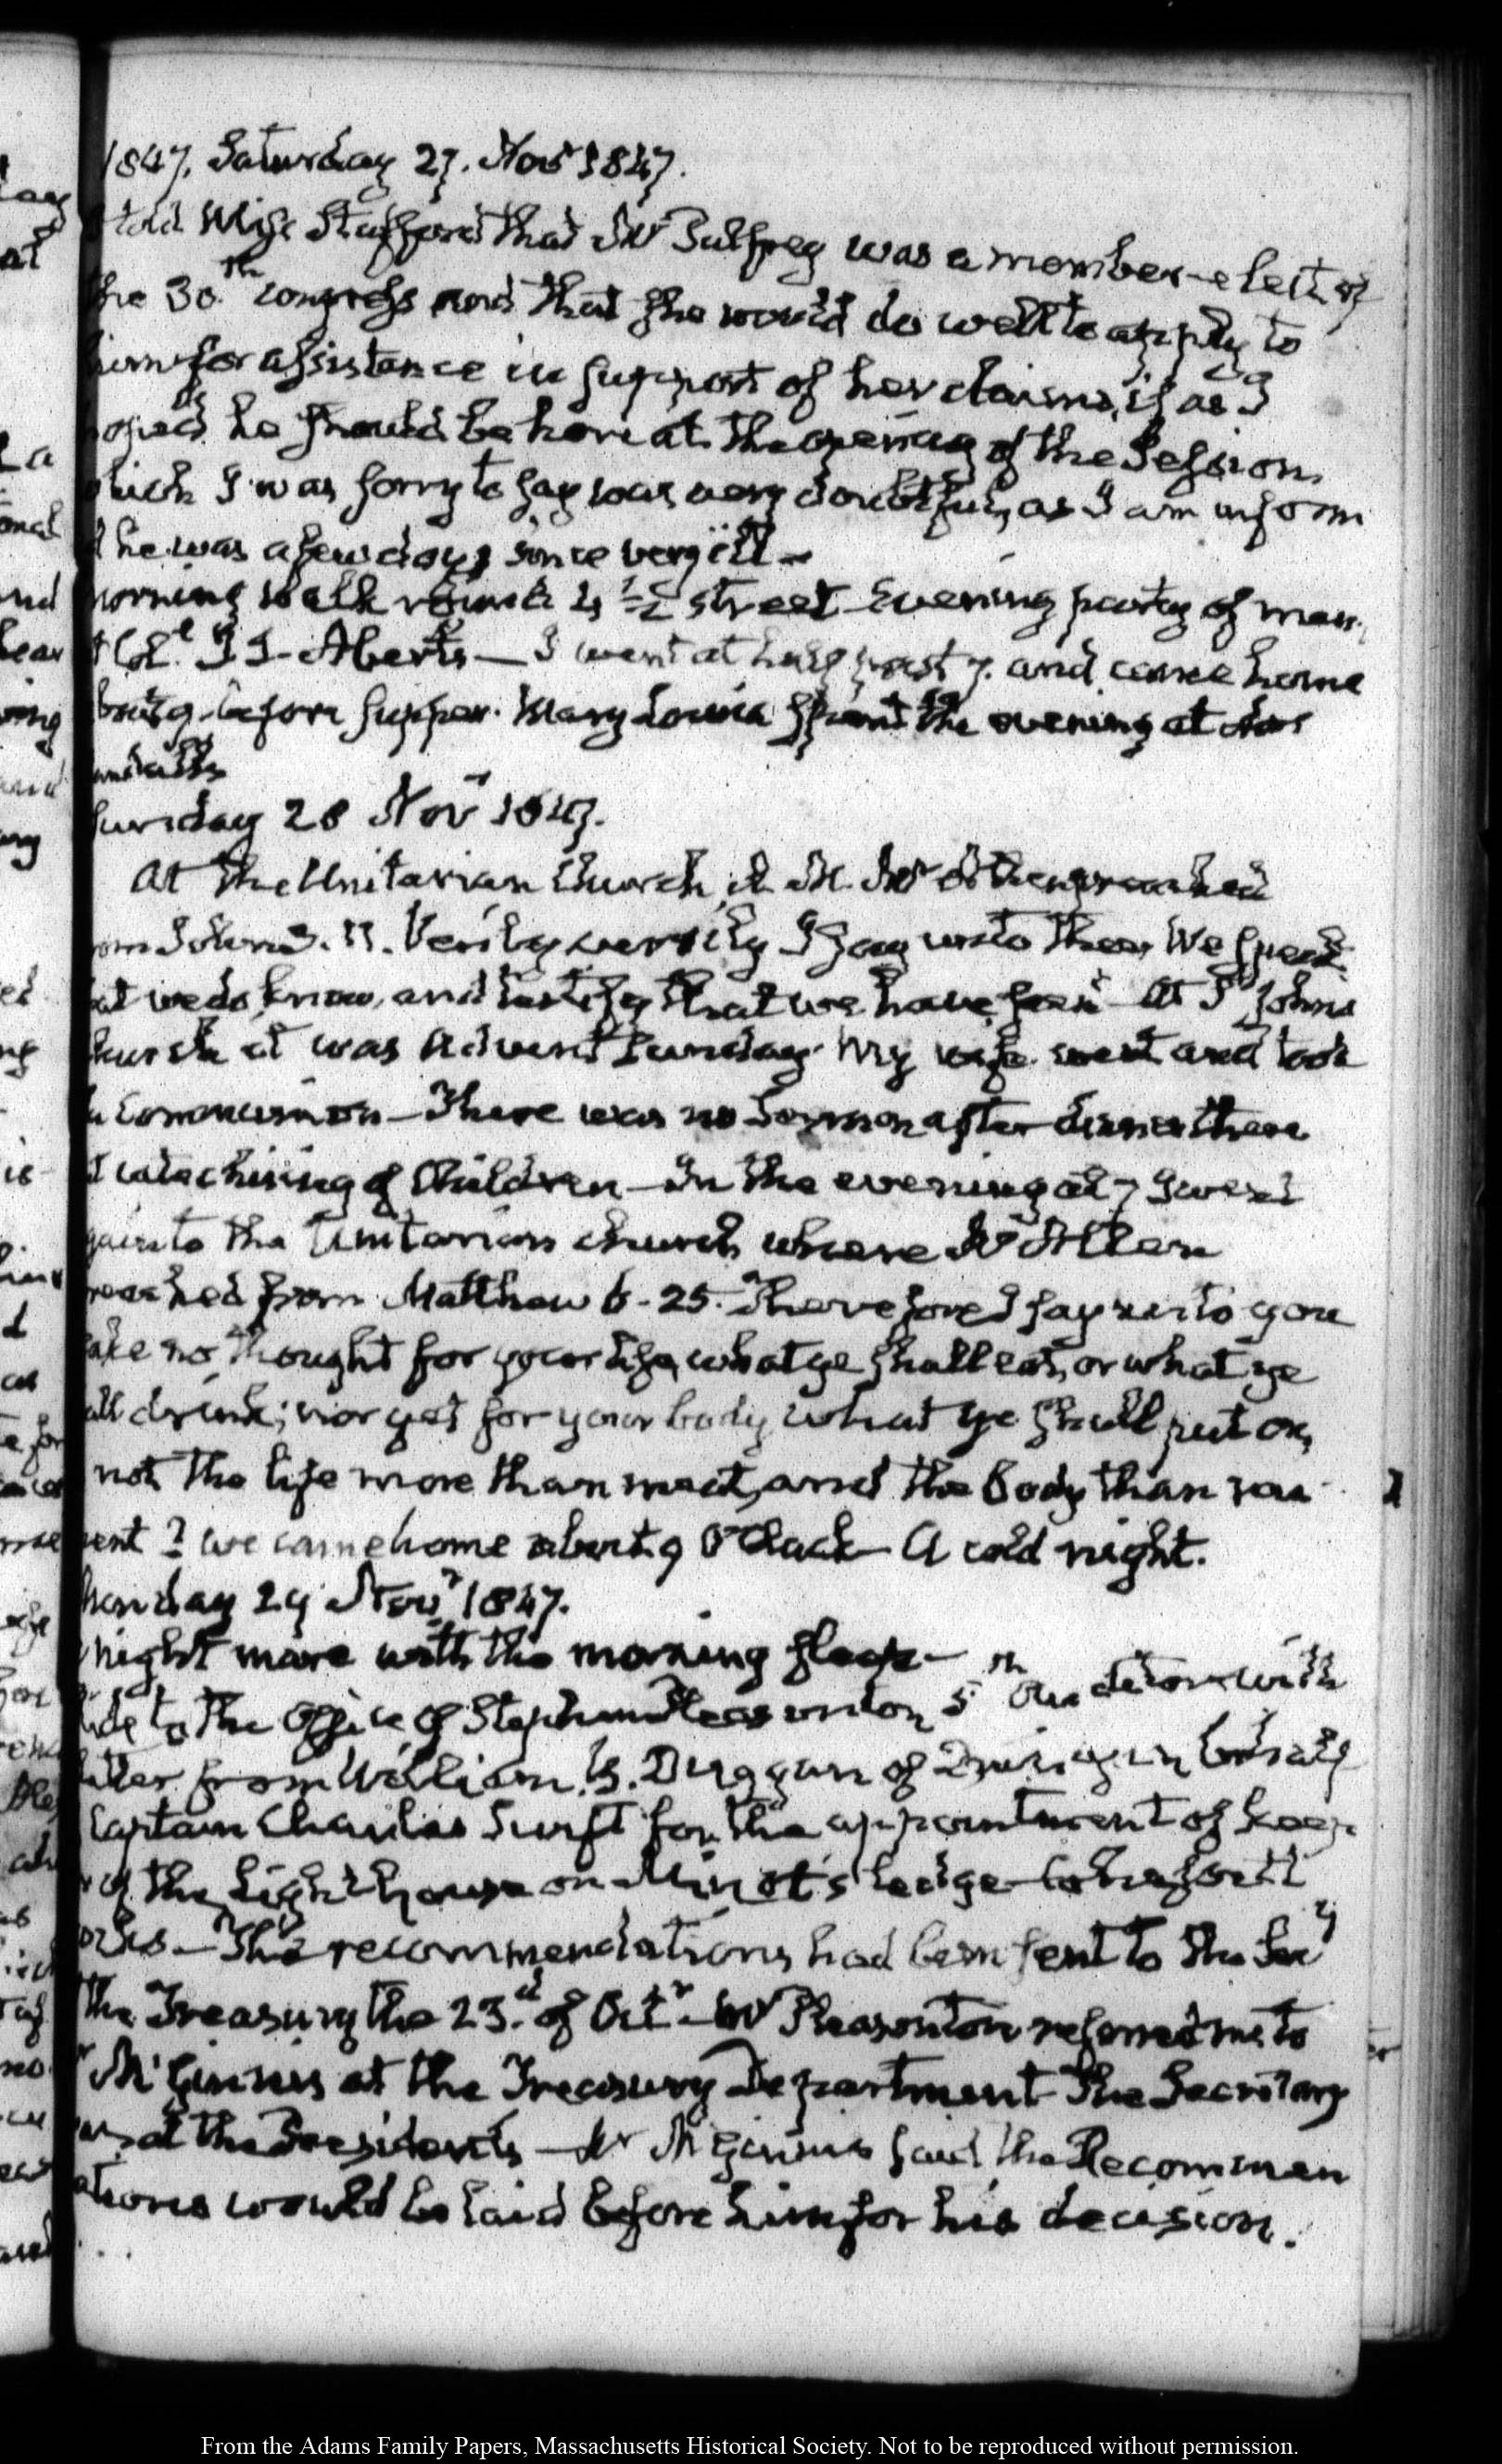 1847. Saturday 27. Nov.r 1847.
I told Miss Stafford that Mr Palfrey was a member-elect of
the 30.th congress and that she would do well to apply to
him for assistance in support of her claims, if as I
hoped he should be here at the opening of the Session,
which I was sorry to say was very doubtful, as I am inform
d he was a few days since very ill —
Morning walk round 4 ½ street — Evening party of men
at Col.l J J. Abert's — I went at half past 7. and came home
about 9. before supper. Mary Louisa spent the evening at

Sunday 28 Nov.r 1847.
At the Unitarian Church, A. M. Mr Allen preached
from John 3. 11. Verily verily I say unto thee, We speak
that we do know, and testify that we have seen — At St Johns
church it was Advent Sunday. My wife went and took
the communion — There was no Sermon after dinner there
but catechising of Children — In the evening at 7 I went
again to the Unitarian church where Mr Allen
preached from Matthew 6-25. Therefore I say unto you
take no thought for your life, what ye shall eat, or what ye
shall drink; nor yet for your body what ye shall put on,
Is not the life more than meat, and the Body than rai
ment? we came home about 9 O'Clock — A cold night.
Monday 29 Nov.r 1847.
night mare with the morning sleep —
to the Office of Stephen Pleasonton 5th Auditor with
letter from William B. Duggan of Quincy in behalf
Captain Charles Swift for the appointment of keep
er of the Light house on Minot's ledge — Cohasset
— The recommendations had been sent to the Secy
the Treasury the 23.d of Oct.r — Mr Pleasonton referred me to
Mr McGinnis at the Treasury Department — The Secretary
was at the Presidents — Mr McGinnis said the Recommen
dations would be laid before him for his decision.
From the Adams Family Papers, Massachusetts Historical Society. Not to be reproduced without permission.